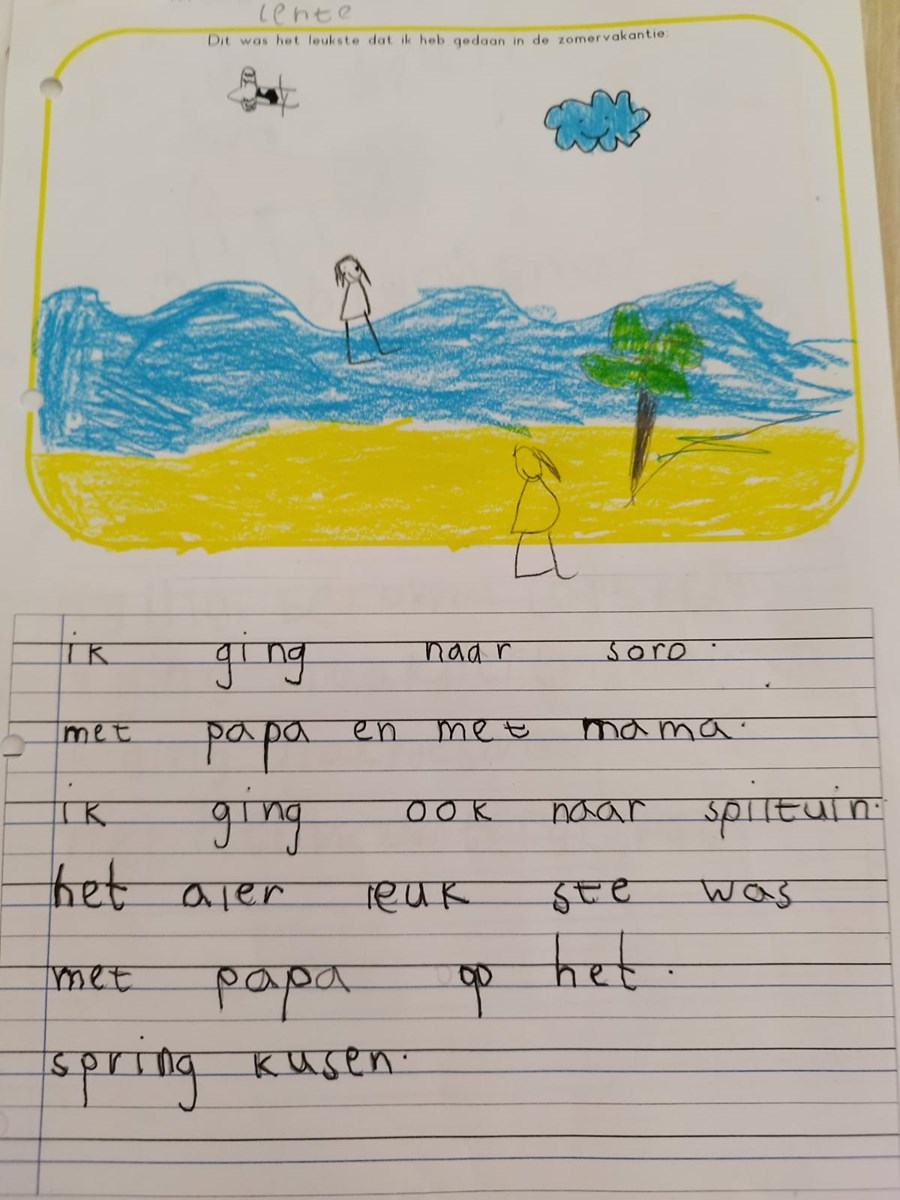 lente
Dit was het leukste dat ik heb gedaan in de zomervakantie:
ik ging naar soro.
met papa en met mama.
ik ging ook naar spiltuin.
het aler leuk ste was
met papa op het.
spring kusen.